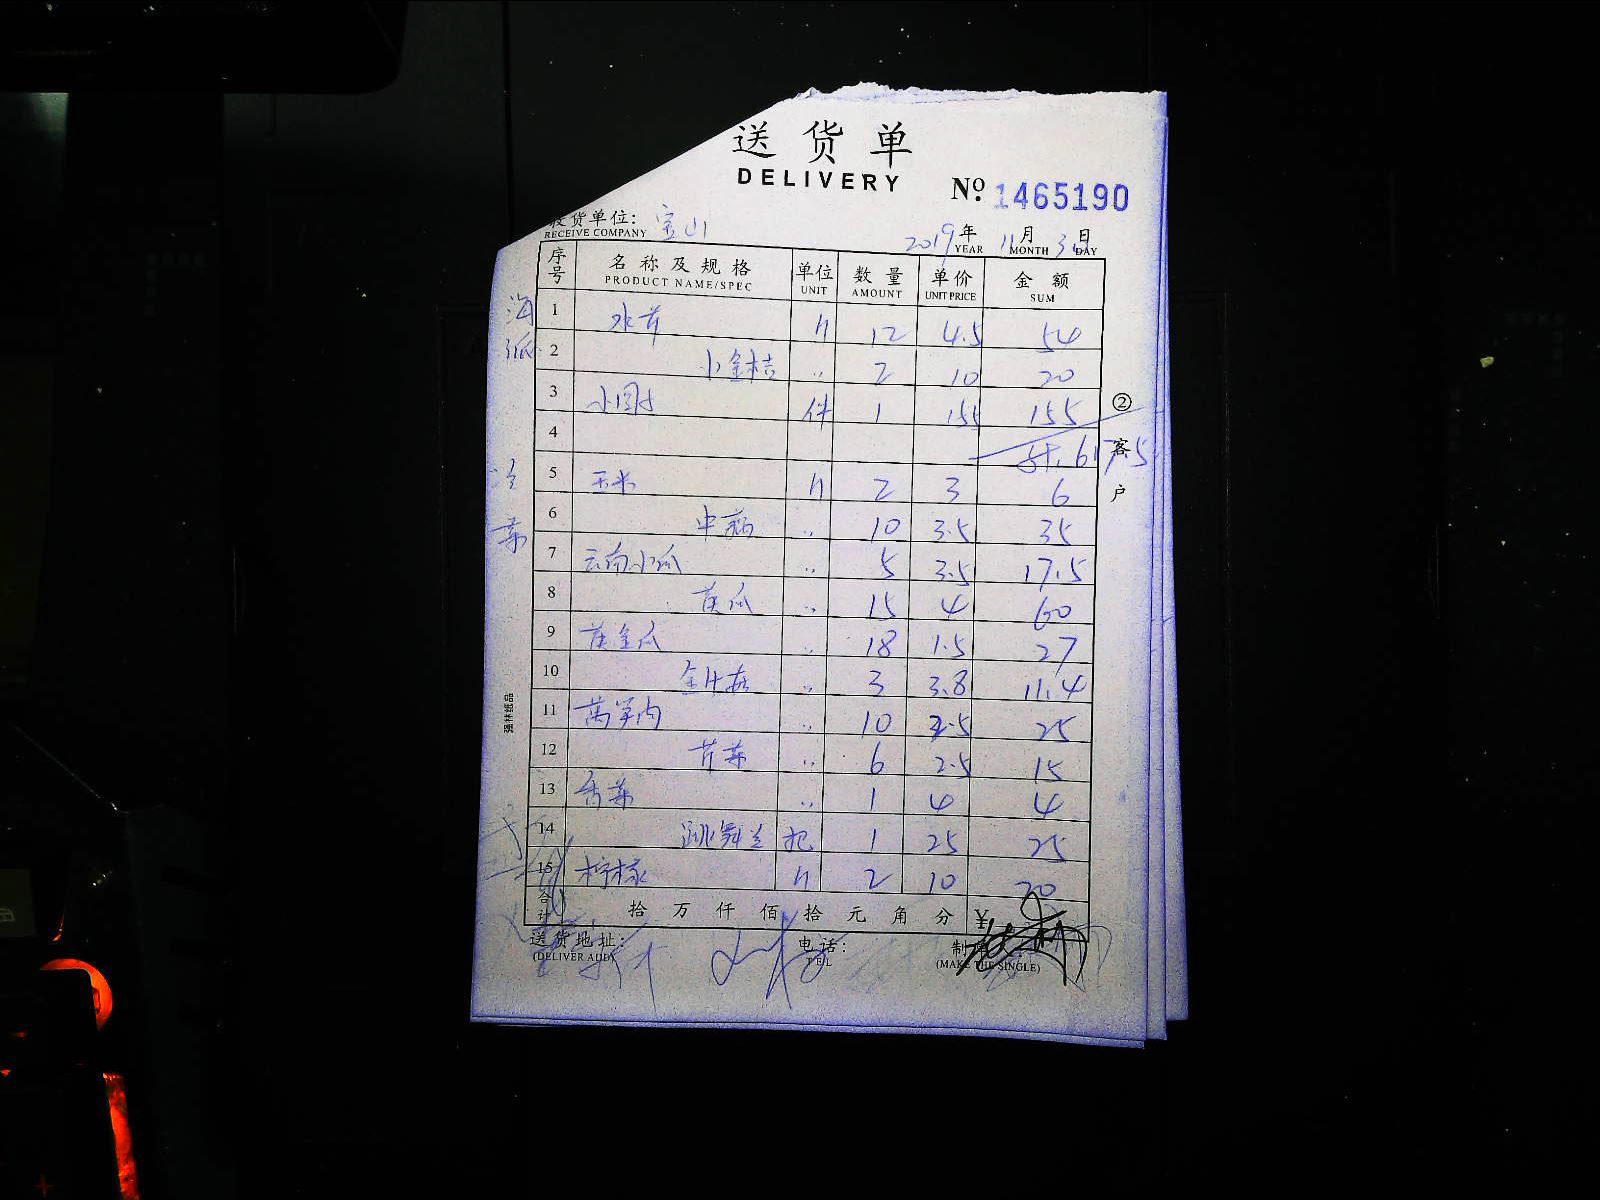 送货单
DELIVERY
№ 1465190
收货单位: 宝山
RECEIVE COMPANY
2019年 11月 3日
YEAR MONTH DAY
序号 名称及规格 单位 数量 单价 金额
PRODUCT NAME/SPEC UNIT AMOUNT UNIT PRICE SUM
1 水芹 斤 12 4.5 54
2 小金桔 〃 2 10 20
3 件 1 155 155
4 617.5
5 玉米 斤 2 3 6
6 中 〃 10 3.5 35
7 云南小瓜 〃 5 3.5 17.5
8 黄瓜 〃 15 4 60
9 黄金瓜 〃 18 1.5 27
10 〃 3 3.8 11.4
11 莴笋肉 〃 10 2.5 25
12 芹菜 〃 6 2.5 15
13 香菜 〃 1 4 4
14 跳舞兰 把 1 25 25
15 柠檬 斤 2 10 20
合计 拾万仟佰拾元角分 ¥
送货地址: 电话: 制
(DELIVER ADD) TEL (MAKE THE SINGLE)
②客户
强林纸品